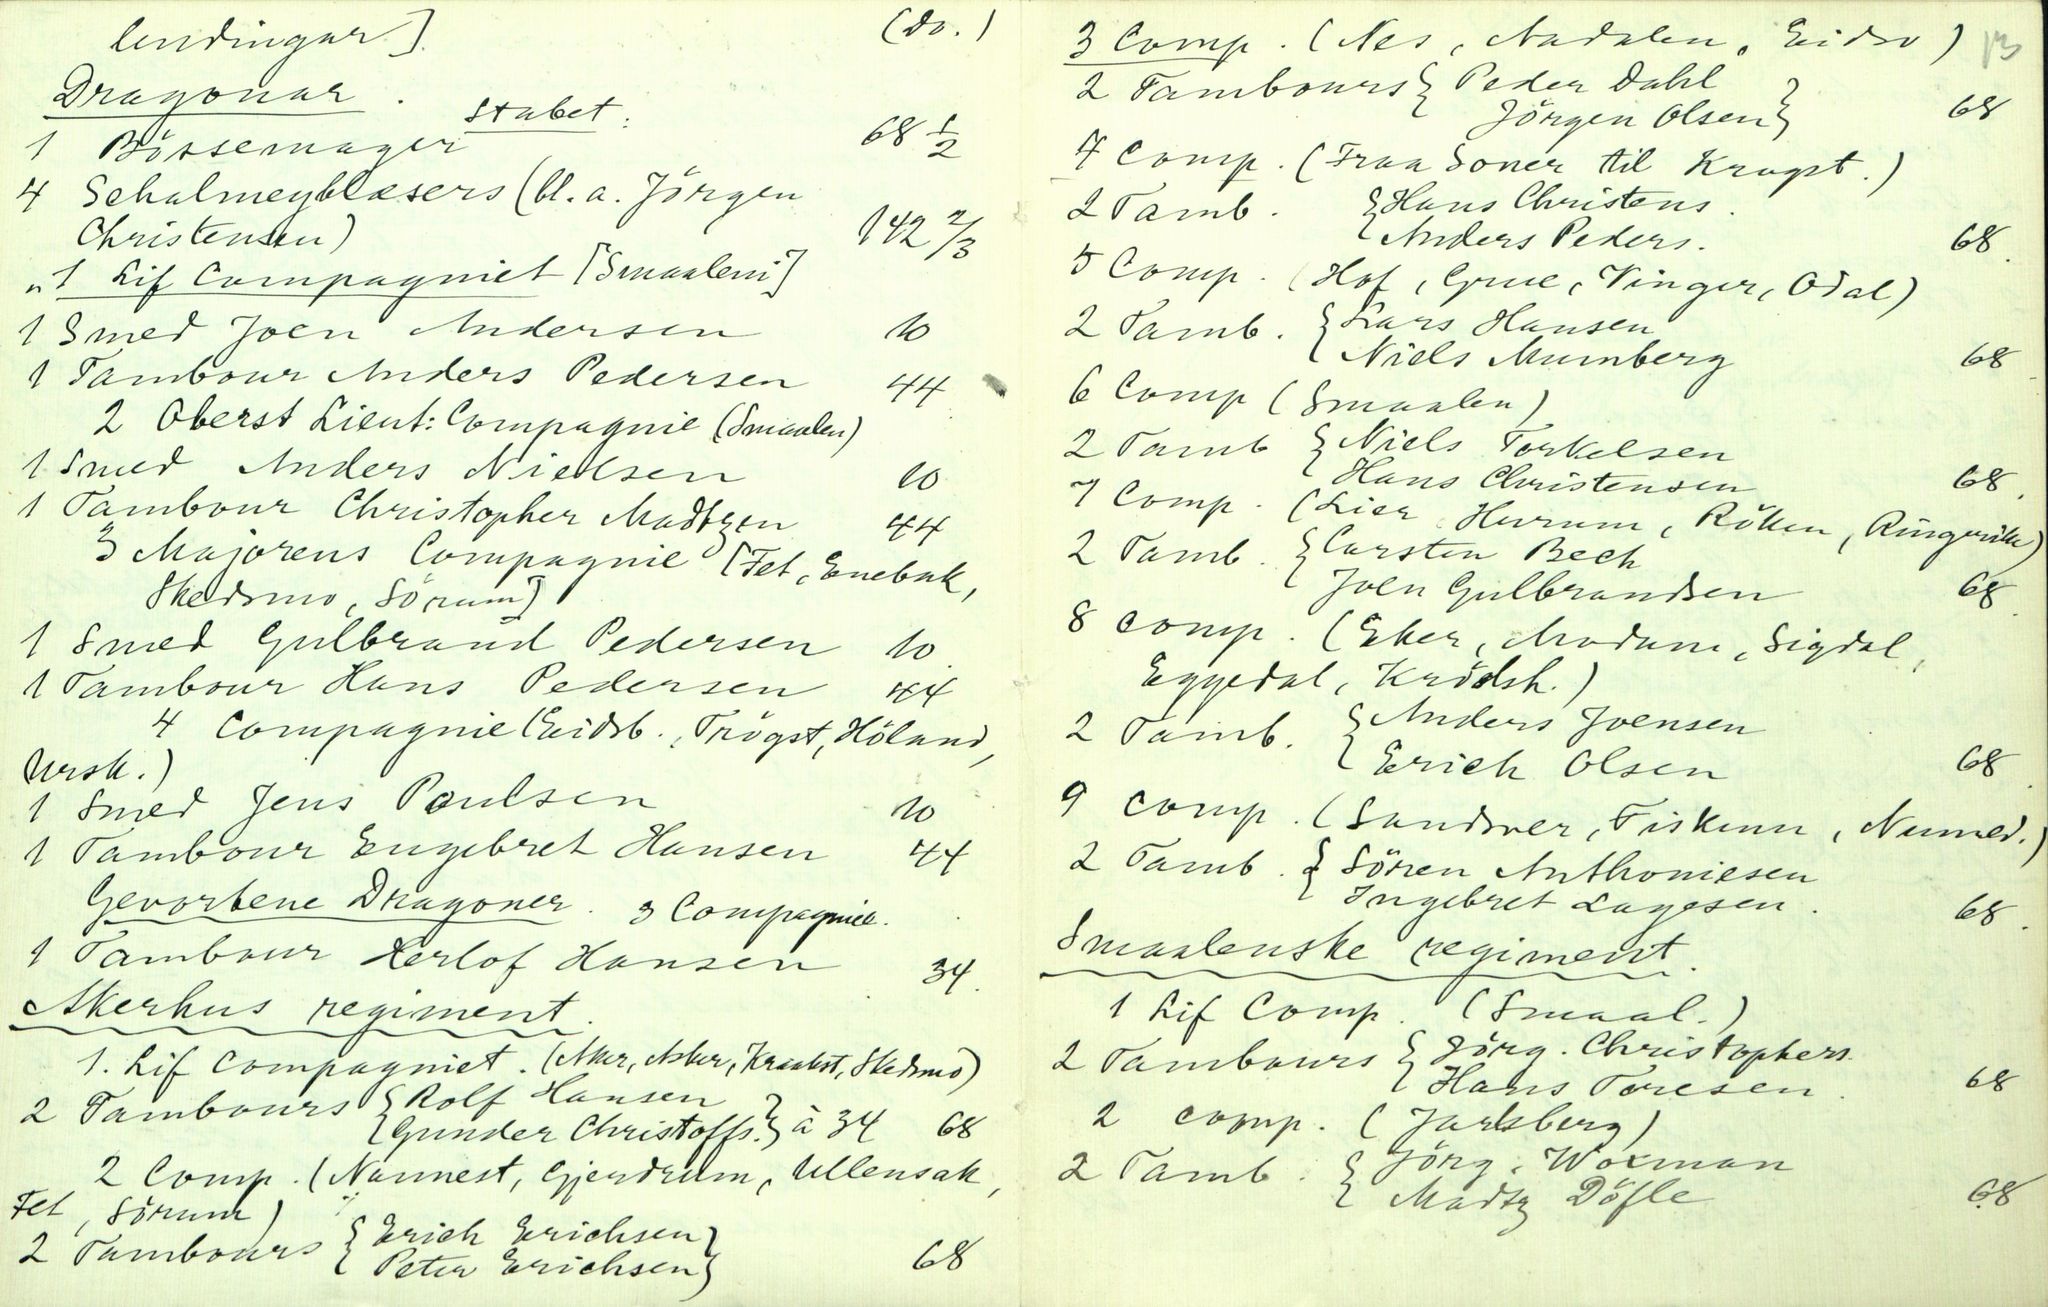 lendingar].
(do.)
Dragonar.
Stabet:
1 Bössemager 68 1/2
4 Schalmeyblæsers (bl.a. Jörgen
Christensen) 142 2/3
"1 Lif Compagniet [Smaaleni]
1 Smed Joen Andersen 10
1 Tambour Anders Pedersen 44
2 Oberst Lieut: Compagnie (Smaalen)
1 Smed Anders Nielsen 10
1 Tambour Christopher Madtzen 44
3 Majorens Compagnie [Fet, Enebak,
Skedsmo, Sörum]
1 Smed Gulbrand Pedersen 10
1 Tambour Hans Pedersen 44
4 Compagnie (Eidsb., Trögst, Höland,
Ursk.)
1 Smed Jens Poulsen 10
1 Tambour Engebret Hansen 44
Gevorbene Dragoner. 3 Compagnie.
1 Tambour Herlof Hansen 34.
Akerhus regiment.
1. Lif Compagniet. (Aker, Asker, Kraakst, Skedsmo)
2 Tambours { Rolf Hansen
Gunder Christoffs. } à 34 68
2 Comp. (Nannest, Gjerdrum, Ullensak,
Fet, Sörum)
2 Tambours { Erich Erichsen
Peter Erichsen } 68
3 Comp. (Nes, Nadalen, Eidsv) 13
2 Tambours { Peder Dahl
Jörgen Olsen } 68
4 Comp. (Fraa Soner til Krogst.)
2 Tamb. { Hans Christens.
Anders Peders. 68.
5 Comp. (Hof, Grue, Vinger, Odal)
2 Tamb. { Lars Hansen
Niels Mumberg 68
6 Comp (Smaalen)
2 Tamb { Niels Torkelsen
Hans Christensen 68.
7 Comp. (Lier, Hurum, Röken, Ringerike)
2 Tamb. { Carsten Bech
Joen Gulbrandsen 68.
8 Comp. (Eker, Modum, Sigdal,
Eggedal, Krödsh.)
2 Tamb. { Anders Joensen
Erich Olsen 68.
9 Comp. (Sandsver, Fiskum, Numed.)
2 Tamb. { Sören Anthoniesen
Ingebret Lagesen. 68.
Smaalenske regiment.
1 Lif Comp. (Smaal.)
2 Tambours { Jörg. Christophers.
Hans Toresen. 68
2 Comp. (Jarlsberg)
2 Tamb. { Jörg. Woxman
Madtz Döfle 68